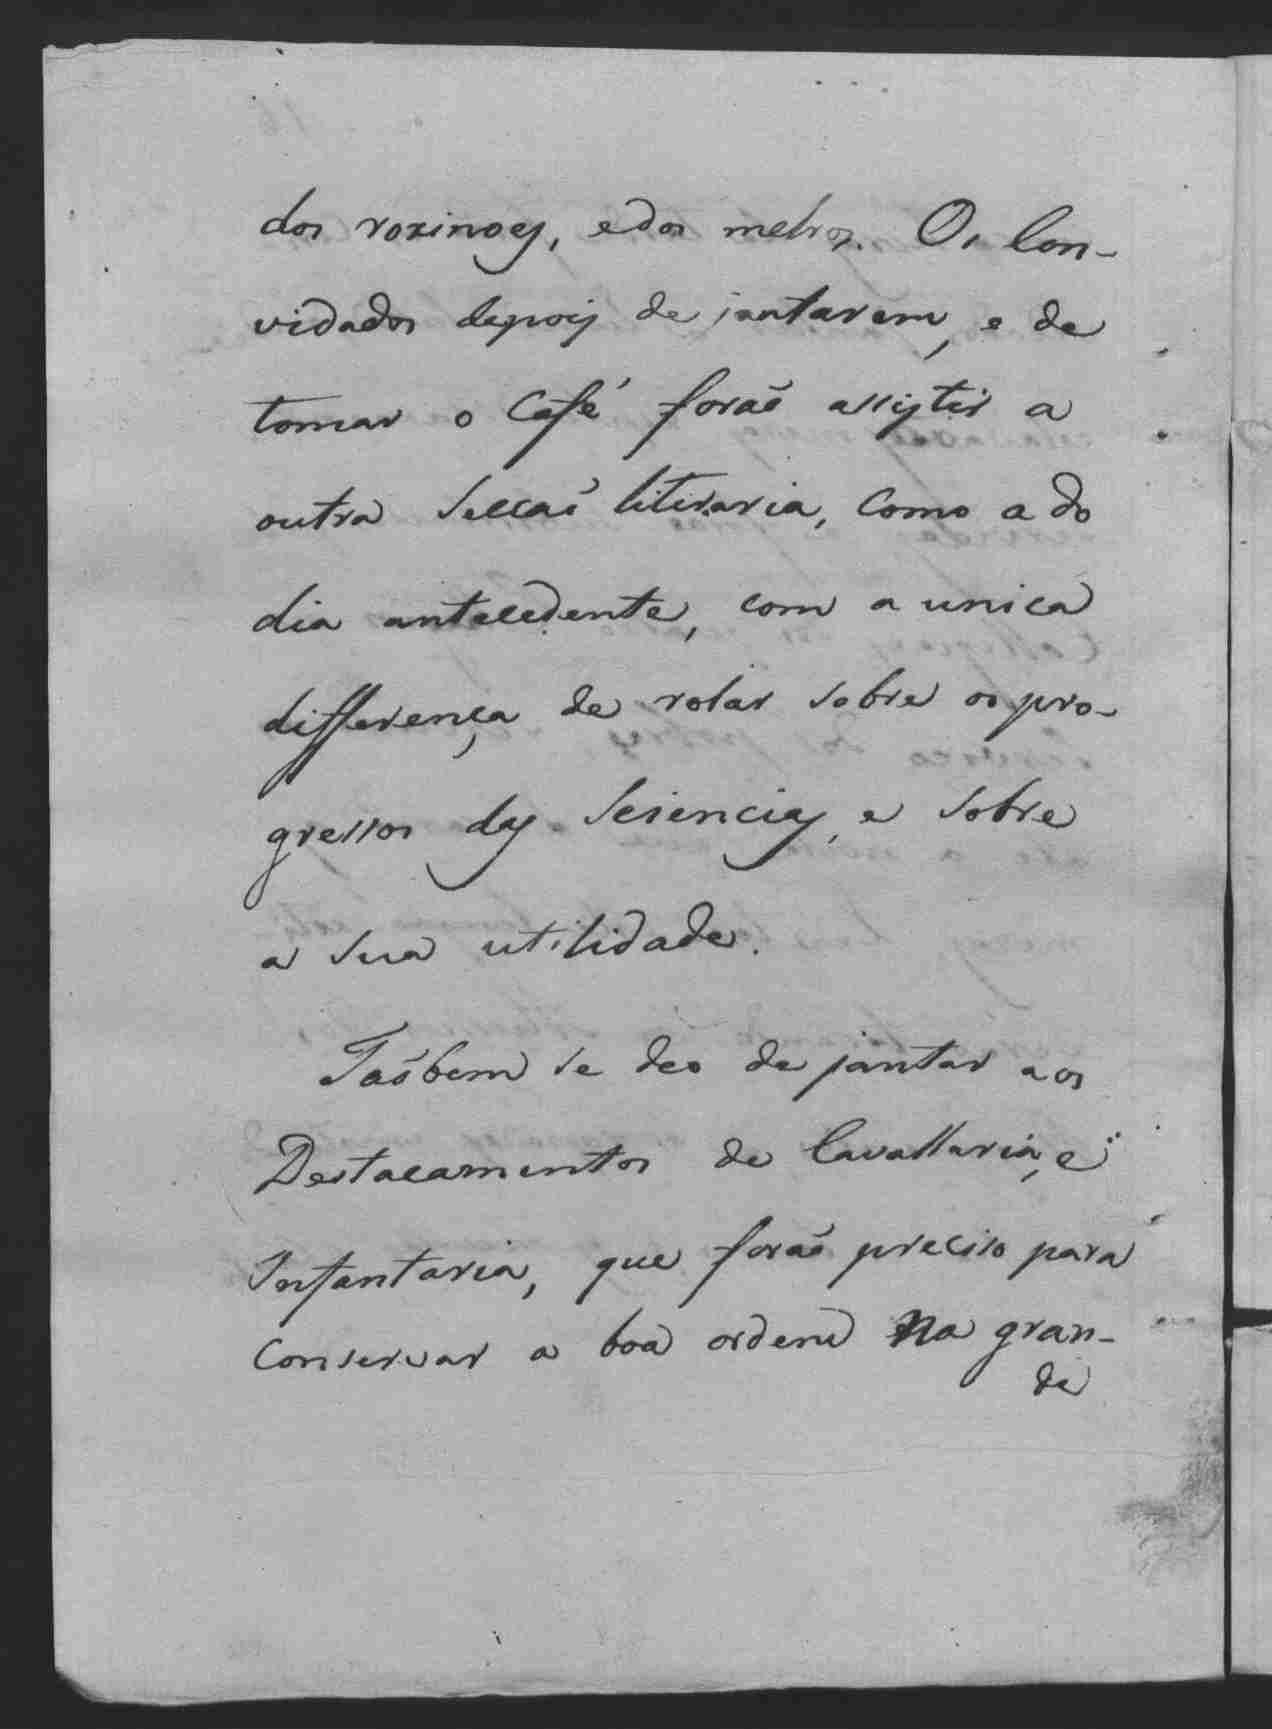 dos roxinoes, e dos melros. Os Con-
vidados depois de jantarem, e de
tomar o Café foraõ assistir a
outra Sessaõ literaria, como a do
dia antecedente, com a unica
differença de rolar sobre os pro-
gressos das Sciencias, e sobre
a sua utilidade.
Taõbem se deo de jantar aos
Destacamentos de Cavallaria, e
Infantaria, que foraõ preciso para
conservar a boa ordem na gran-
de